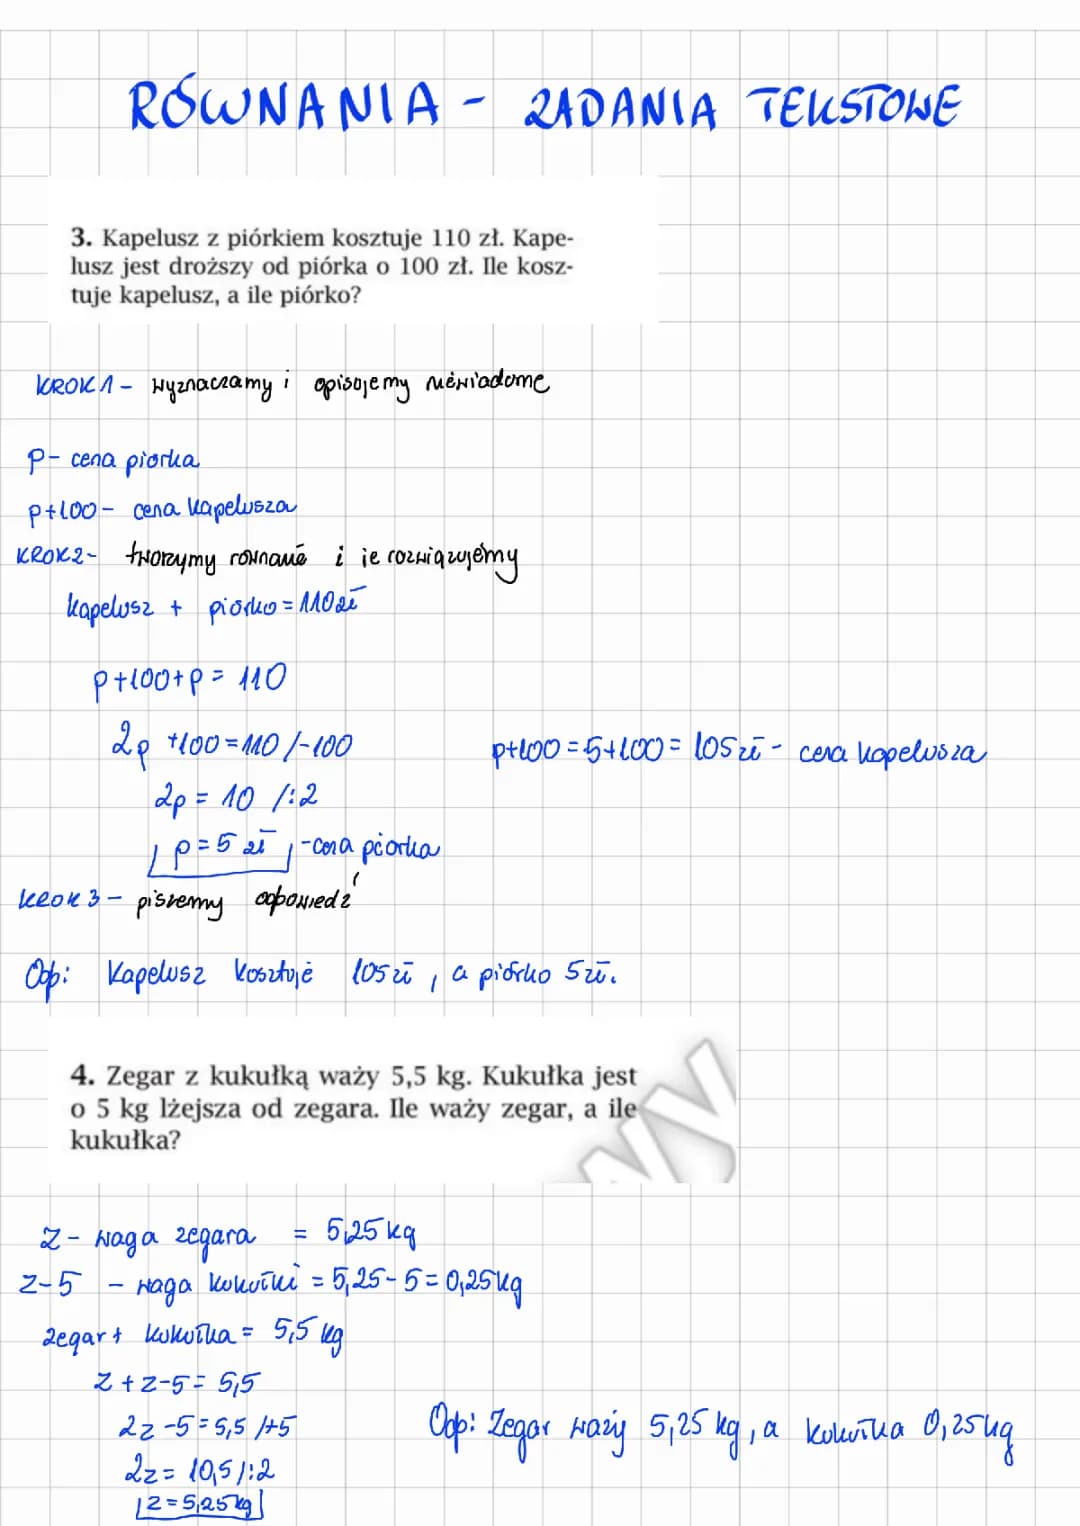 RÓWNANIA - ZADANIA TEKSTOWE
3. Kapelusz z piórkiem kosztuje 110 zł. Kape-
lusz jest droższy od piórka o 100 zł. Ile kosz-
tuje kapelusz, a ile piórko?
KROK 1 - wyznaczamy i opisujemy niewiadome
p - cena piórka
p+100 - cena kapelusza
KROK 2 - tworzymy równanie i je rozwiązujemy
kapelusz + piórko = 110 zł
p+100+p = 110
2p +100 = 110 /-100
p+100 = 5+100 = 105 zł - cena kapelusza
2p = 10 /:2
p = 5 zł - cena piórka
KROK 3 - piszemy odpowiedź
Odp: Kapelusz kosztuje 105 zł, a piórko 5 zł.
4. Zegar z kukułką waży 5,5 kg. Kukułka jest
o 5 kg lżejsza od zegara. Ile waży zegar, a ile
kukułka?
wy
z - waga zegara = 5,25 kg
z-5 - waga kukułki = 5,25 - 5 = 0,25 kg
zegar + kukułka = 5,5 kg
z + z - 5 = 5,5
2z - 5 = 5,5 /+5
Odp: Zegar waży 5,25 kg, a kukułka 0,25 kg
2z = 10,5 /:2
z = 5,25 kg